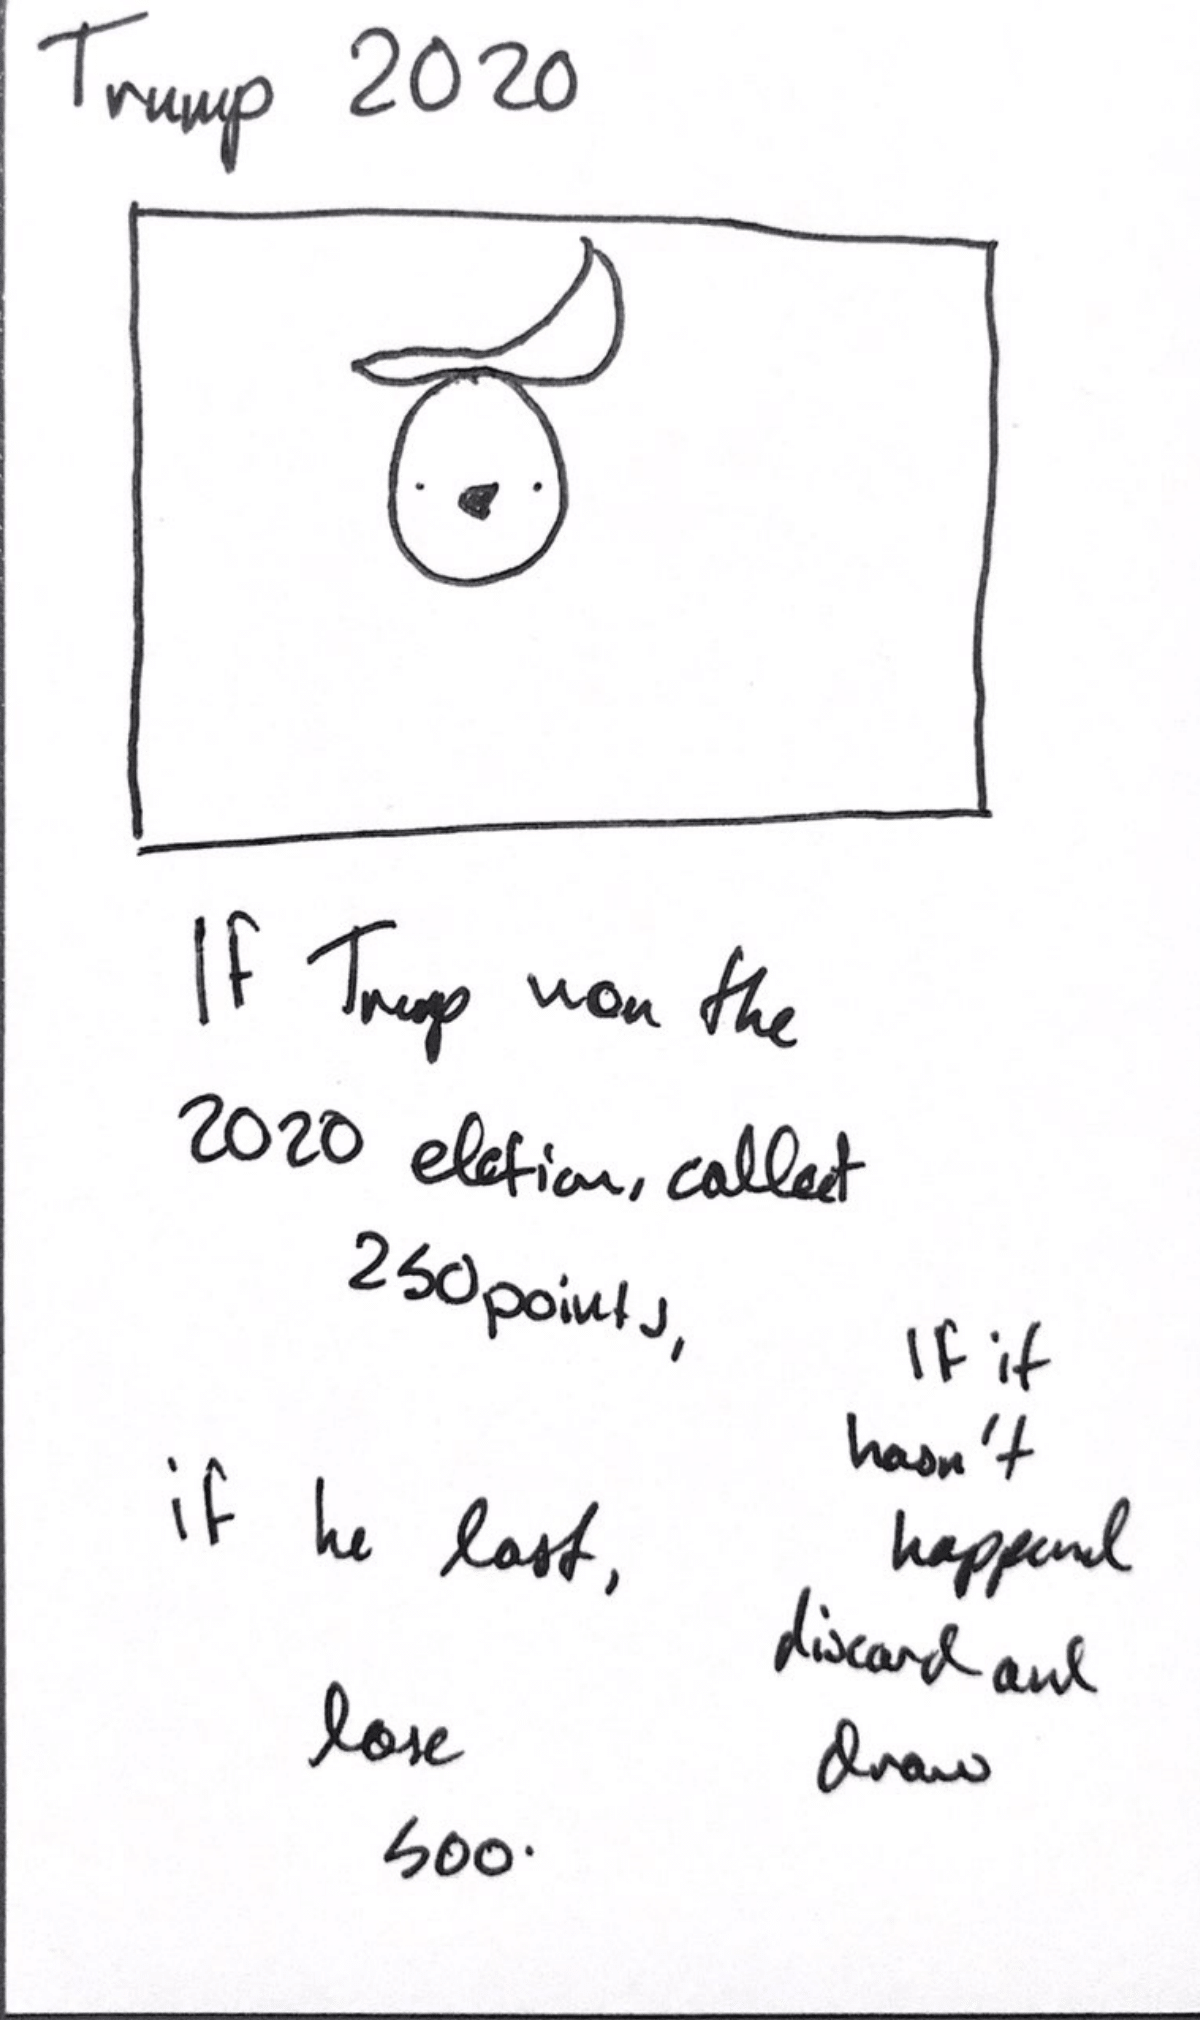 Trump 2020
If Trump won the
2020 election, collect
250 points,
if he lost,
lose
500.
If it
hasn't
happened
discard and
draw